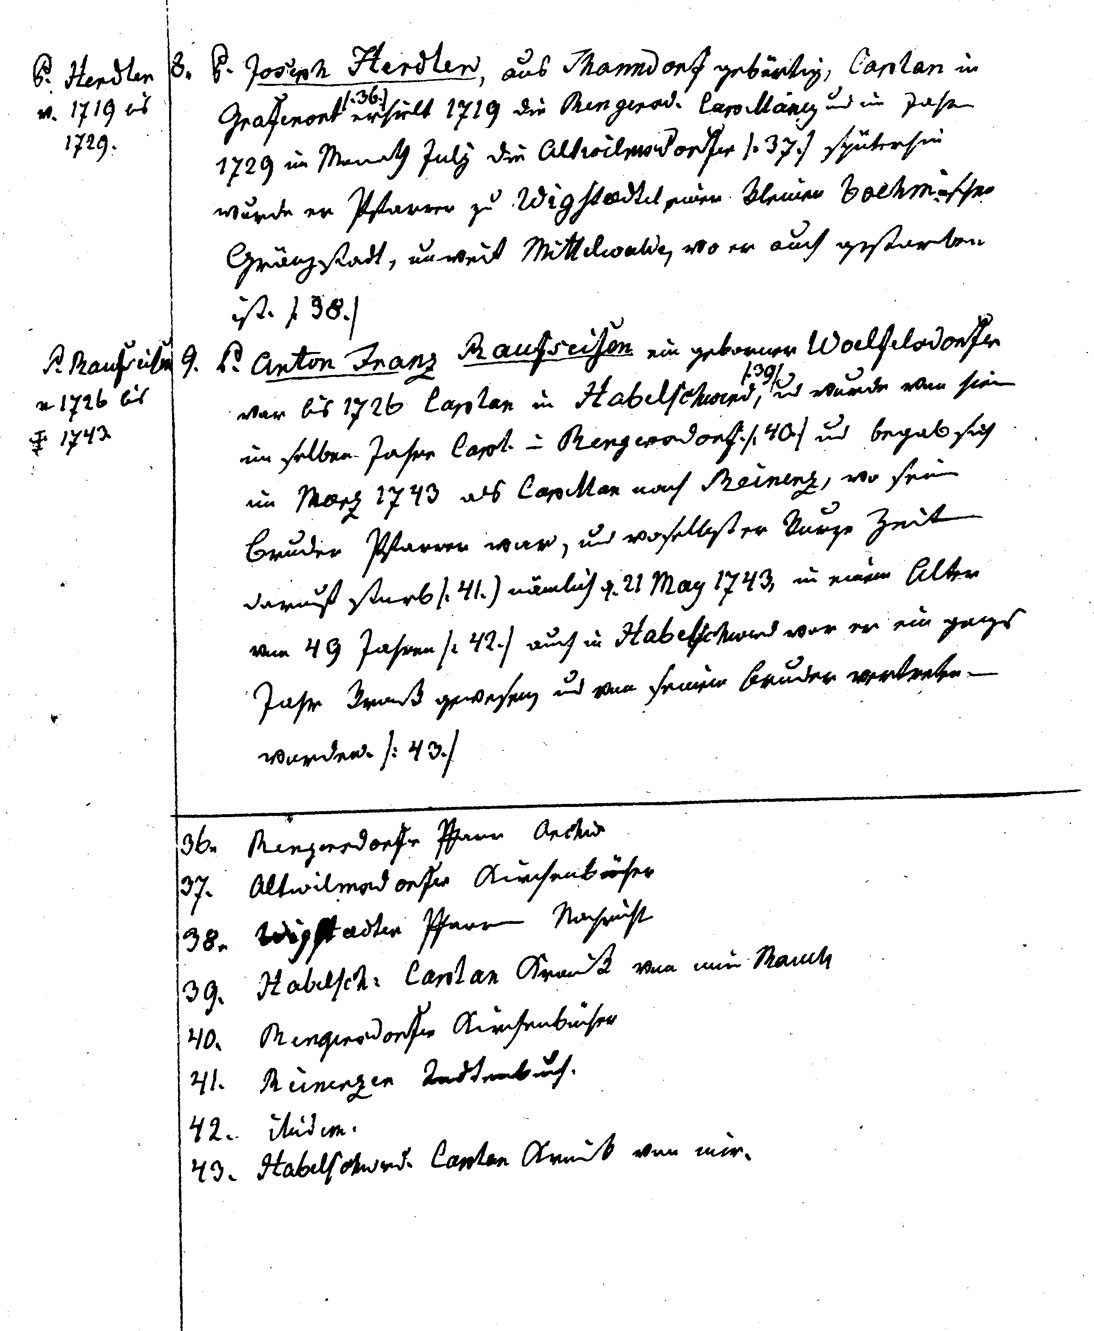 P. Herdler
v. 1719 bis
1729.
8. P. Joseph Herdler, aus Thanndorf gebürtig, Caplan in
Grafenort /:36:/ erhielt 1719 die Rengersd. Capellaney und im Jahr
1729 im Monath July die Altwilmsdorfer /:37:/ späterhin
wurde er Pfarrer zu Wigstadtel einer kleinen boehmischen
Gränzstadt, unweit Mittelwalde, wo er auch gestorben
ist. /:38:/
P. Raufseisen
v 1726 bis
† 1743
9. P. Anton Franz Raufseisen ein geborner Woelfelsdorfer
war bis 1726 Caplan in Habelschwerd, /:39:/ und wurde von hier
im selben Jahre Capl. in Rengersdorf /:40:/ und begab sich
im Maerz 1743 als Capellan nach Reinerz, wo sein
Bruder Pfarrer war, und woselbst er kurze Zeit
darauf starb /:41:/ nämlich d. 21 May 1743, in einem Alter
von 49 Jahren /:42:/ auch in Habelschwerd war er ein ganzes
Jahr krank gewesen und von seinem Bruder vertreten
worden. /:43:/
36. Rengersdorfer Pfarr Archiv
37. Altwilmsdorfer Kirchenbücher
38. Wigstadter Pfarr Nachricht
39. Habelsch: Caplan von mir
40. Rengersdorfer Kirchenbücher
41. Reinerzer Todtenbuch.
42. ibidem.
43. Habelschwerd. Caplan von mir.